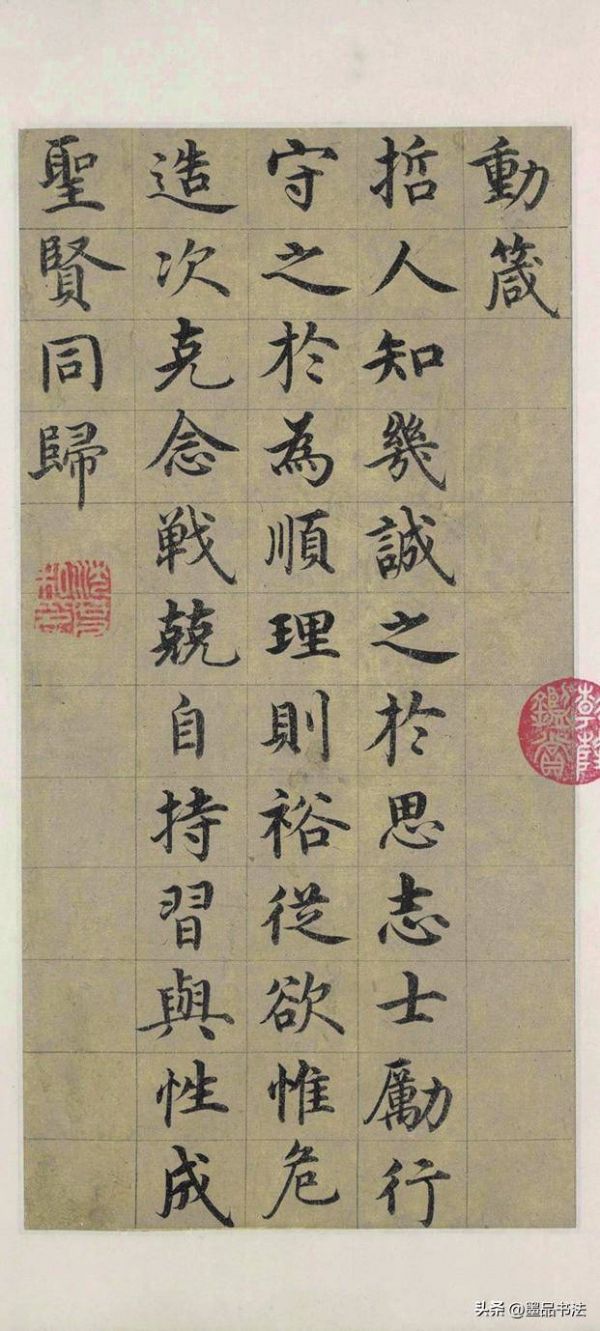 動箴
哲人知幾誠之於思志士厲行
守之於為順理則裕從欲惟危
造次克念戰兢自持習與性成
聖賢同歸
头条 @墨品书法